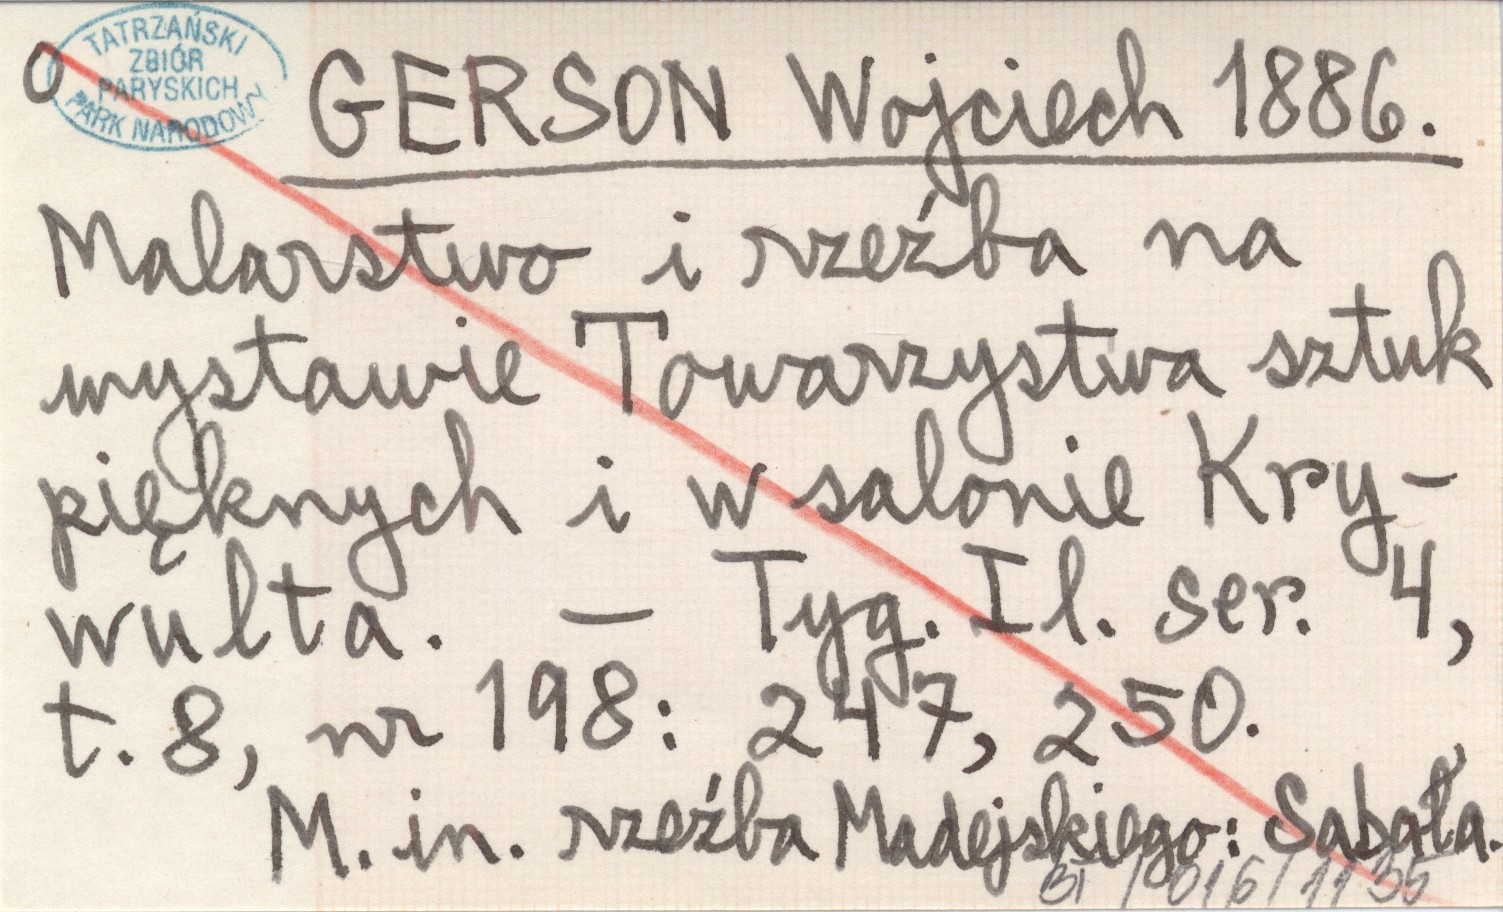 TATRZAŃSKI
ZBIÓR
PARYSKICH
PARK NARODOWY
O
GERSON Wojciech 1886.
Malarstwo i rzeźba na
wystawie Towarzystwa sztuk
pięknych i w salonie Kry-
wulta. — Tyg. Il. ser. 4,
t. 8, nr 198: 247, 250.
M. in. rzeźba Madejskiego: Sabała.
/016/1135